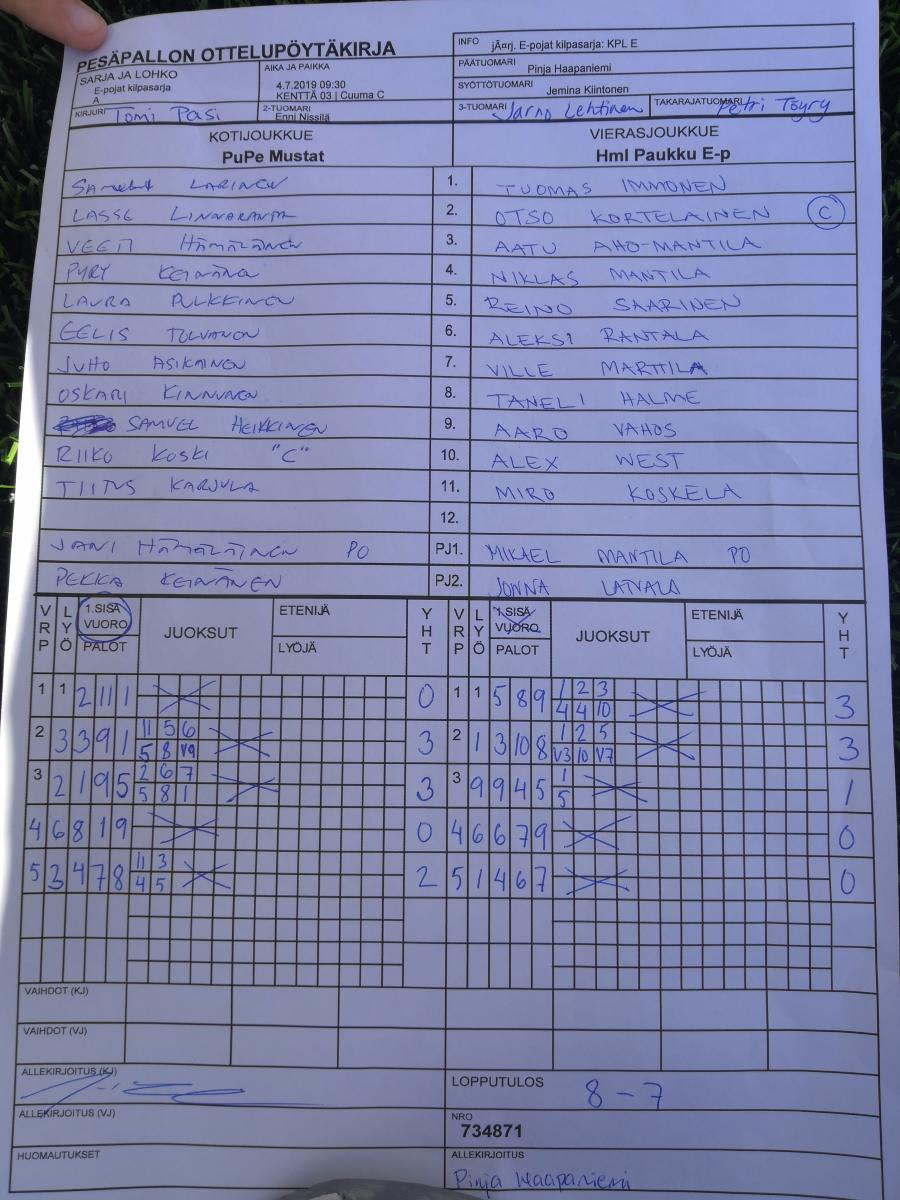 PESÄPALLON OTTELUPÖYTÄKIRJA
INFO jÃ¤rj. E-pojat kilpasarja: KPL E
SARJA JA LOHKO
E-pojat kilpasarja
A
AIKA JA PAIKKA
4.7.2019 09:30
KENTTÄ 03 | Cuuma C
PÄÄTUOMARI Pinja Haapaniemi
SYÖTTÖTUOMARI Jemina Kiintonen
KIRJURI Tomi Pasi
2-TUOMARI
Enni Nissilä
3-TUOMARI Jarno Lehtinen
TAKARAJATUOMARI Petri Töyry
KOTIJOUKKUE VIERASJOUKKUE
PuPe Mustat Hml Paukku E-p
LARINEN 1. TUOMAS IMMONEN
LASSE LINNARANTA 2. OTSO KORTELAINEN C
VEETI HÄMÄLÄINEN 3. AATU AHO-MANTILA
PYRY KEINÄNEN 4. NIKLAS MANTILA
LAURA PULKKINEN 5. REINO SAARINEN
EELIS TOLVANEN 6. ALEKSI RANTALA
JUHO ASIKAINEN 7. VILLE MARTTILA
OSKARI KINNUNEN 8. TANELI HALME
SAMUEL HEIKKINEN 9. AARO VAHOS
RIIKO KOSKI "C" 10. ALEX WEST
TIITUS KARJULA 11. MIRO KOSKELA
12.
JANI HÄMÄLÄINEN PO PJ1. MIKAEL MANTILA PO
PEKKA KEINÄNEN PJ2. JONNA LATVALA
VRP LYÖ 1.SISÄ VUORO PALOT JUOKSUT ETENIJÄ LYÖJÄ YHT VRP LYÖ 1.SISÄ VUORO PALOT JUOKSUT ETENIJÄ LYÖJÄ YHT
1 1 2 11 1 0 1 1 5 8 9 1 2 3 3
4 4 10
2 3 3 9 1 11 5 6 3 2 1 3 10 8 1 2 5 3
5 8 V9 V3 10 V7
3 2 1 9 5 2 6 7 3 3 9 9 4 5 1 1
5 8 1 5
4 6 8 1 9 0 4 6 6 7 9 0
5 3 4 7 8 11 3 2 5 1 4 6 7 0
4 5
VAIHDOT (KJ)
VAIHDOT (VJ)
ALLEKIRJOITUS (KJ)
LOPPUTULOS 8 - 7
ALLEKIRJOITUS (VJ)
NRO
734871
HUOMAUTUKSET
ALLEKIRJOITUS
Pinja Haapaniemi